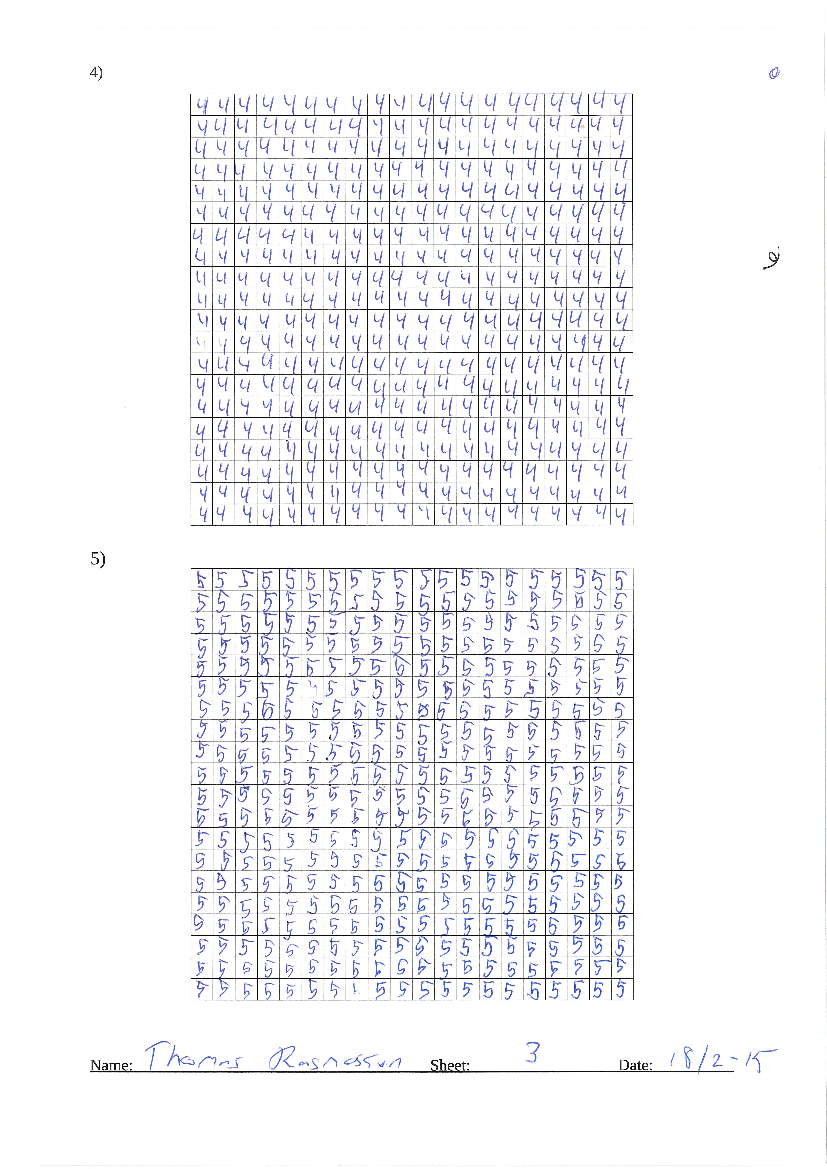 4)
4 4 4 4 4 4 4 4 4 4 4 4 4 4 4 4 4 4 4 4
4 4 4 4 4 4 4 4 4 4 4 4 4 4 4 4 4 4 4 4
4 4 4 4 4 4 4 4 4 4 4 4 4 4 4 4 4 4 4 4
4 4 4 4 4 4 4 4 4 4 4 4 4 4 4 4 4 4 4 4
4 4 4 4 4 4 4 4 4 4 4 4 4 4 4 4 4 4 4 4
4 4 4 4 4 4 4 4 4 4 4 4 4 4 4 4 4 4 4 4
4 4 4 4 4 4 4 4 4 4 4 4 4 4 4 4 4 4 4 4
4 4 4 4 4 4 4 4 4 4 4 4 4 4 4 4 4 4 4 4
4 4 4 4 4 4 4 4 4 4 4 4 4 4 4 4 4 4 4 4
4 4 4 4 4 4 4 4 4 4 4 4 4 4 4 4 4 4 4 4
4 4 4 4 4 4 4 4 4 4 4 4 4 4 4 4 4 4 4 4
4 4 4 4 4 4 4 4 4 4 4 4 4 4 4 4 4 4 4 4
4 4 4 4 4 4 4 4 4 4 4 4 4 4 4 4 4 4 4 4
4 4 4 4 4 4 4 4 4 4 4 4 4 4 4 4 4 4 4 4
4 4 4 4 4 4 4 4 4 4 4 4 4 4 4 4 4 4 4 4
4 4 4 4 4 4 4 4 4 4 4 4 4 4 4 4 4 4 4 4
4 4 4 4 4 4 4 4 4 4 4 4 4 4 4 4 4 4 4 4
4 4 4 4 4 4 4 4 4 4 4 4 4 4 4 4 4 4 4 4
4 4 4 4 4 4 4 4 4 4 4 4 4 4 4 4 4 4 4 4
4 4 4 4 4 4 4 4 4 4 4 4 4 4 4 4 4 4 4 4
5)
5 5 5 5 5 5 5 5 5 5 5 5 5 5 5 5 5 5 5 5
5 5 5 5 5 5 5 5 5 5 5 5 5 5 5 5 5 5 5 5
5 5 5 5 5 5 5 5 5 5 5 5 5 5 5 5 5 5 5 5
5 5 5 5 5 5 5 5 5 5 5 5 5 5 5 5 5 5 5 5
5 5 5 5 5 5 5 5 5 5 5 5 5 5 5 5 5 5 5 5
5 5 5 5 5 5 5 5 5 5 5 5 5 5 5 5 5 5 5 5
5 5 5 5 5 5 5 5 5 5 5 5 5 5 5 5 5 5 5 5
5 5 5 5 5 5 5 5 5 5 5 5 5 5 5 5 5 5 5 5
5 5 5 5 5 5 5 5 5 5 5 5 5 5 5 5 5 5 5 5
5 5 5 5 5 5 5 5 5 5 5 5 5 5 5 5 5 5 5 5
5 5 5 5 5 5 5 5 5 5 5 5 5 5 5 5 5 5 5 5
5 5 5 5 5 5 5 5 5 5 5 5 5 5 5 5 5 5 5 5
5 5 5 5 5 5 5 5 5 5 5 5 5 5 5 5 5 5 5 5
5 5 5 5 5 5 5 5 5 5 5 5 5 5 5 5 5 5 5 5
5 5 5 5 5 5 5 5 5 5 5 5 5 5 5 5 5 5 5 5
5 5 5 5 5 5 5 5 5 5 5 5 5 5 5 5 5 5 5 5
5 5 5 5 5 5 5 5 5 5 5 5 5 5 5 5 5 5 5 5
5 5 5 5 5 5 5 5 5 5 5 5 5 5 5 5 5 5 5 5
5 5 5 5 5 5 5 5 5 5 5 5 5 5 5 5 5 5 5 5
5 5 5 5 5 5 5 5 5 5 5 5 5 5 5 5 5 5 5 5
Name: Thomas Rasmussen Sheet: 3 Date: 18/2-15